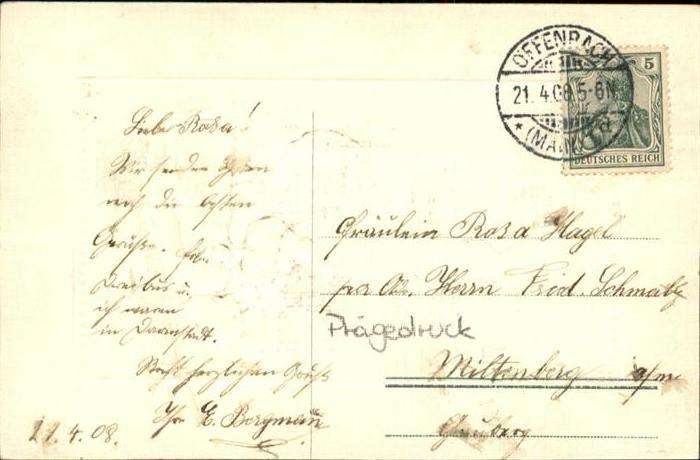 OFFENBACH
21. 4.08.5-6N
* (MAIN)
5
DEUTSCHES REICH
Liebe Rosa!
Wir senden Ihnen
noch die besten
Grüße.
u.
ich waren
in Darmstadt.
Recht herzlichen Gruß
Ihr E. Bergmann
21.4.08.
Fräulein Rosa Hagel
per Adr. Herrn Fried. Schmaltz
Prägedruck
Miltenberg a/m